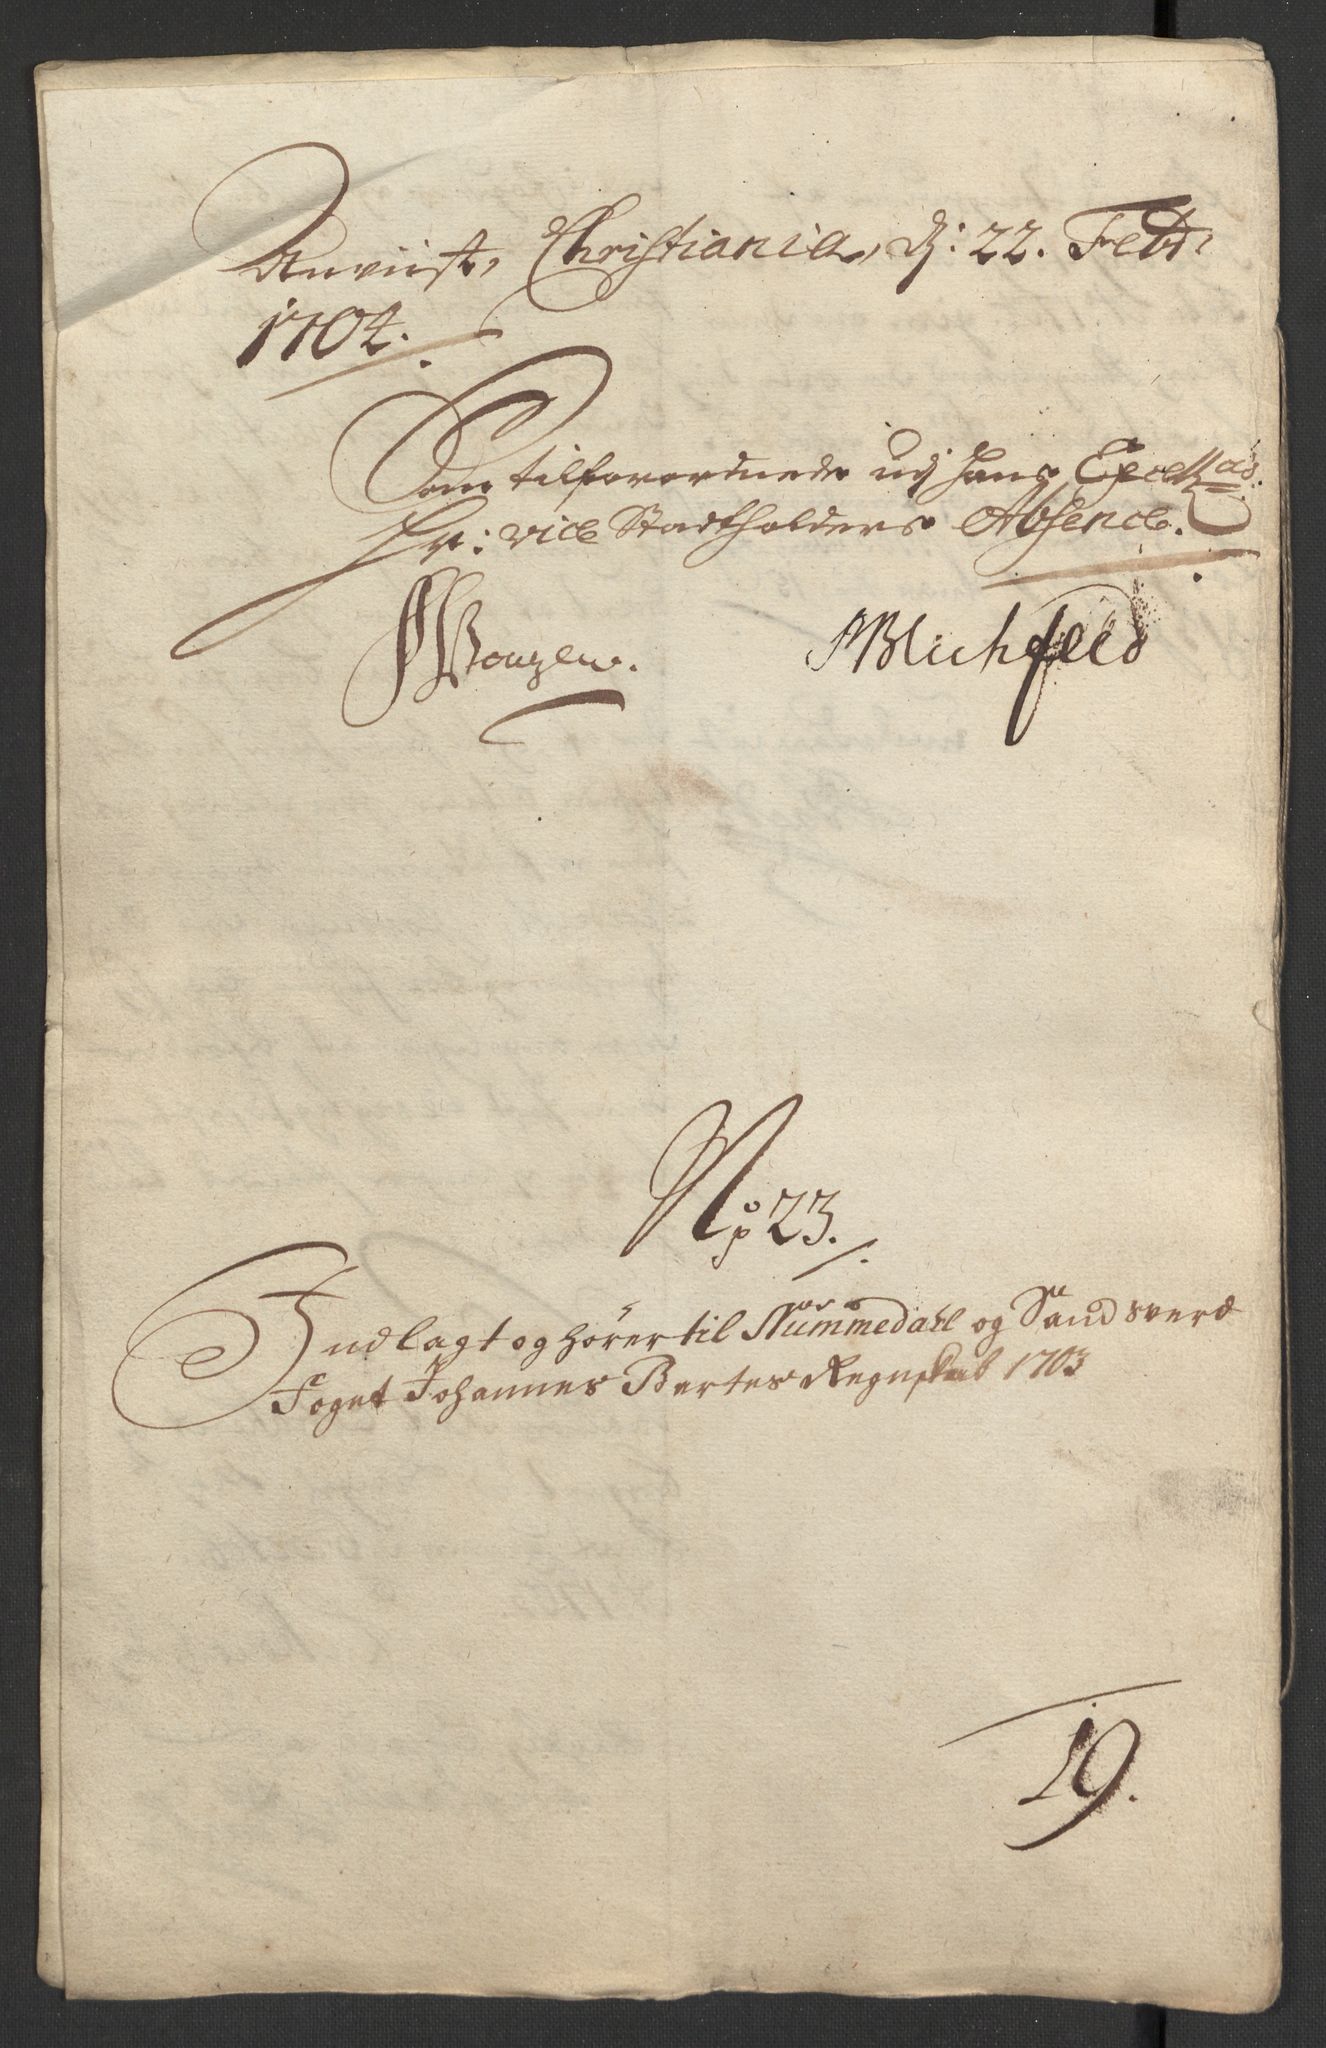 Anviist, Christiania, dj: 22. Febr:
1704.
Som tilforordnede udj Hans Excell
Hr: vice Stadtholders Absence.
Blichfeld
No 23.
Indlagt og hører til Nummedahl og Sandsverd
Foget Johannes Bertes Regnskab 1703
19.